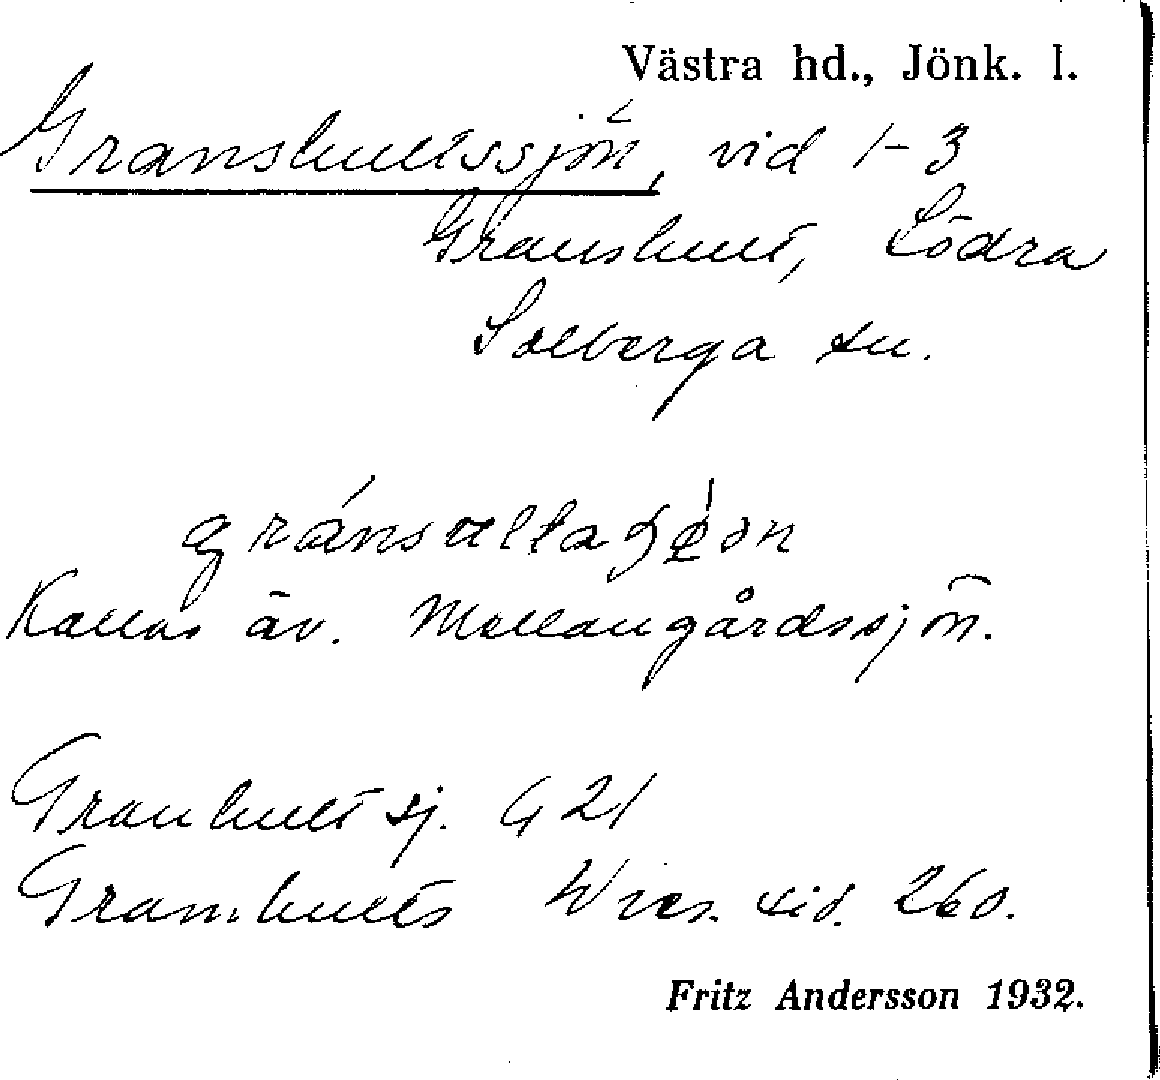 Västra hd., Jönk. l.
Granshultssjön, vid 1-3
Granshult, Södra
Solberga sn.
Kallas äv. Mellangårdssjön.
Granhult sj. G 21
Gramhults Wies. sid. 260.
Fritz Andersson 1932.